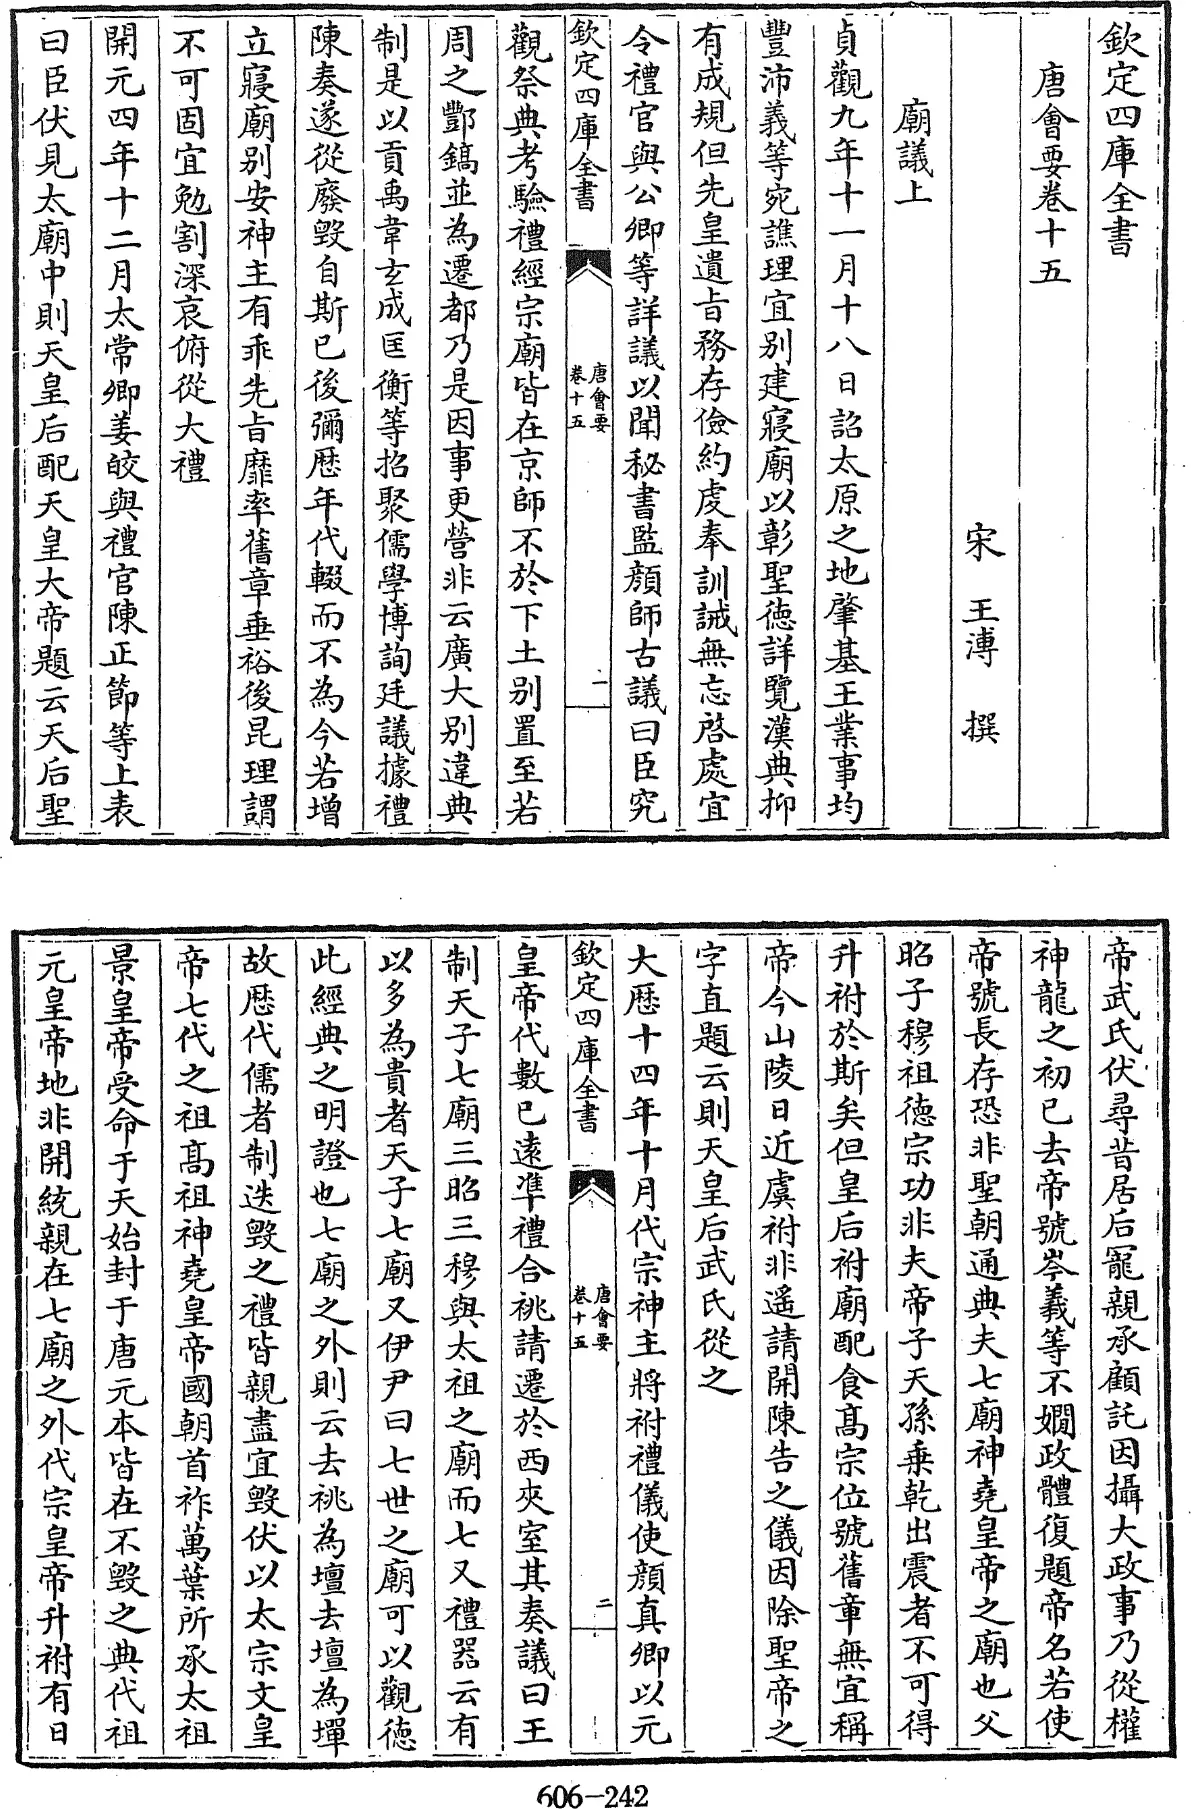 欽定四庫全書
唐會要卷十五
宋 王溥 撰
廟議上
貞觀九年十一月十八日詔太原之地肇基王業事均
豐沛義等宛譙理宜別建寢廟以彰聖德詳覽漢典抑
有成規但先皇遺㫖務存儉約虔奉訓誡無忘啓處宜
令禮官與公卿等詳議以聞秘書監顔師古議曰臣究
欽定四庫全書
唐會要
卷十五
一
觀祭典考驗禮經宗廟皆在京師不於下土別置至若
周之酆鎬並為遷都乃是因事更營非云廣大別違典
制是以貢禹韋玄成匡衡等招聚儒學博詢廷議據禮
陳奏遂從廢毀自斯已後彌歴年代輟而不為今若增
立寢廟別安神主有乖先㫖靡率舊章垂裕後昆理謂
不可固宜勉割深哀俯從大禮
開元四年十二月太常卿姜皎與禮官陳正節等上表
曰臣伏見太廟中則天皇后配天皇大帝題云天后聖
帝武氏伏尋昔居后寵親承顧託因攝大政事乃從權
神龍之初已去帝號岑羲等不嫺政體復題帝名若使
帝號長存恐非聖朝通典夫七廟神堯皇帝之廟也父
昭子穆祖德宗功非夫帝子天孫乗乾出震者不可得
升祔於斯矣但皇后祔廟配食髙宗位號舊章無宜稱
帝今山陵日近虞祔非遥請開陳告之儀因除聖帝之
字直題云則天皇后武氏從之
大歴十四年十月代宗神主將祔禮儀使顔真卿以元
欽定四庫全書
唐會要
卷十五
二
皇帝代數已遠準禮合祧請遷於西夾室其奏議曰王
制天子七廟三昭三穆與太祖之廟而七又禮器云有
以多為貴者天子七廟又伊尹曰七世之廟可以觀德
此經典之明證也七廟之外則云去祧為壇去壇為墠
故歴代儒者制迭毀之禮皆親盡宜毀伏以太宗文皇
帝七代之祖髙祖神堯皇帝國朝首祚萬葉所承太祖
景皇帝受命于天始封于唐元本皆在不毀之典代祖
元皇帝地非開統親在七廟之外代宗皇帝升祔有日
606-242